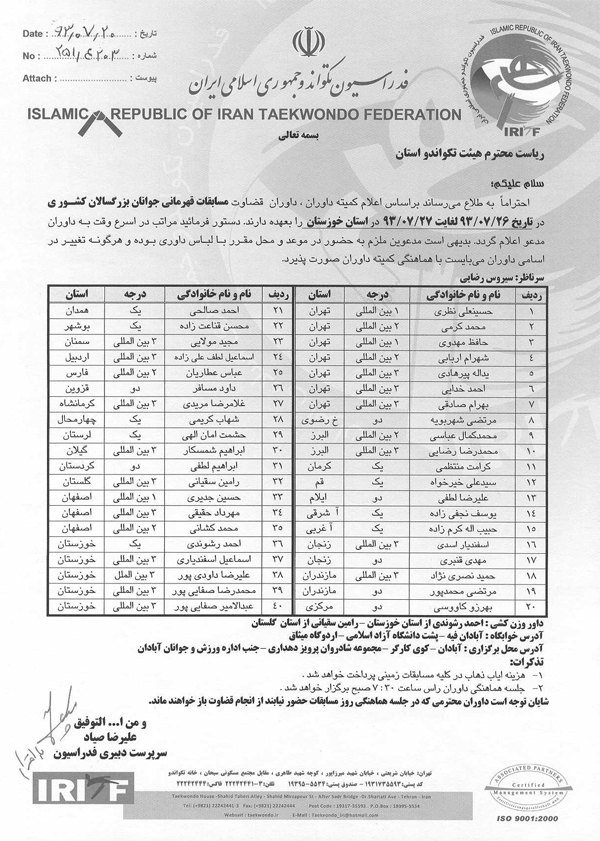 Date : ۹۳،۰۷،۲۰ : تاریخ
شماره :
No :
Attach : ........................ : پیوست
فدراسیون تکواندو جمهوری اسلامی ایران
ISLAMIC REPUBLIC OF IRAN TAEKWONDO FEDERATION
ISLAMIC REPUBLIC OF IRAN TAEKWONDO FEDERATION
IRITF
بسمه تعالی
ریاست محترم هیئت تکواندو استان
سلام علیکم؛
احتراماً به طلاع می‌رساند براساس اعلام کمیته داوران ، داوران قضاوت مسابقات قهرمانی جوانان بزرگسالان کشوری
در تاریخ ۹۳/۰۷/۲۶ لغایت ۹۳/۰۷/۲۷ در استان خوزستان را بعهده دارند. دستور فرمائید مراتب در اسرع وقت به داوران
مدعو اعلام گردد. بدیهی است مدعوین ملزم به حضور در موعد و محل مقرر با لباس داوری بوده و هرگونه تغییر در
اسامی داوران می‌بایست با هماهنگی کمیته داوران صورت پذیرد.
سرناظر: سیروس رضایی
ردیف نام و نام خانوادگی درجه استان ردیف نام و نام خانوادگی درجه استان
۱ حسینعلی نظری ۱ بین المللی تهران ۲۱ احمد صالحی یک همدان
۲ محمد کرمی ۲ بین المللی تهران ۲۲ محسن قناعت زاده یک بوشهر
۳ حافظ مهدوی ۱ بین المللی تهران ۲۳ مجید مولایی ۳ بین المللی سمنان
۴ شهرام اربابی ۲ بین المللی تهران ۲۴ اسماعیل لطف علی زاده ۳ بین المللی اردبیل
۵ یداله پیرهادی ۳ بین المللی تهران ۲۵ عباس عطاریان ۲ بین المللی فارس
۶ احمد خدایی ۳ بین المللی تهران ۲۶ داود مسافر دو قزوین
۷ بهرام صادقی ۳ بین المللی تهران ۲۷ غلامرضا مریدی ۳ بین المللی کرمانشاه
۸ مرتضی شهربویه دو خ رضوی ۲۸ شهاب کریمی یک چهارمحال
۹ محمدکمال عباسی ۲ بین المللی البرز ۲۹ حشمت امان الهی یک لرستان
۱۰ محمدرضا رضایی ۳ بین المللی البرز ۳۰ ابراهیم شمسکار ۳ بین المللی گیلان
۱۱ کرامت منتظمی یک کرمان ۳۱ ابراهیم لطفی دو کردستان
۱۲ سیدعلی خیرخواه یک قم ۳۲ رامین سقیانی ۳ بین المللی گلستان
۱۳ علیرضا لطفی دو ایلام ۳۳ حسین جدیری ۱ بین المللی اصفهان
۱۴ یوسف نجفی زاده یک آ شرقی ۳۴ مهرداد حقیقی ۳ بین المللی اصفهان
۱۵ حبیب اله کرم زاده یک آ غربی ۳۵ محمد کشانی ۲ بین المللی اصفهان
۱۶ اسفندیار اسدی ۳ بین المللی زنجان ۳۶ احمد رشوندی یک خوزستان
۱۷ مهدی قنبری دو زنجان ۳۷ اسماعیل اسفندیاری ۳ بین المللی خوزستان
۱۸ حمید نصری نژاد ۳ بین المللی مازندران ۳۸ علیرضا داودی پور ۳ بین الملل خوزستان
۱۹ مرتضی محمدپور دو مازندران ۳۹ محمدرضا صفایی پور ۳ بین المللی خوزستان
۲۰ بهرزو کاووسی دو مرکزی ۴۰ عبدالامیر صفایی پور ۳ بین المللی خوزستان
داور وزن کشی : احمد رشوندی از استان خوزستان – رامین سقیانی از استان گلستان
آدرس خوابگاه : آبادان فیه – پشت دانشگاه آزاد اسلامی – اردوگاه میثاق
آدرس محل برگزاری : آبادان – کوی کارگر – مجموعه شادروان پرویز دهداری – جنب اداره ورزش و جوانان آبادان
تذکرات:
۱- هزینه ایاب ذهاب در کلیه مسابقات زمینی پرداخت خواهد شد .
۲- جلسه هماهنگی داوران راس ساعت ۷:۳۰ صبح برگزار خواهد شد .
شایان توجه است داوران محترمی که در جلسه هماهنگی روز مسابقات حضور نیابند از انجام قضاوت باز خواهند ماند.
و من ا... التوفیق
علیرضا صیاد
سرپرست دبیری فدراسیون
IRITF
تهران: خیابان شریعتی ، خیابان شهید میرزاپور ، کوچه شهید طاهری ، مقابل مجتمع مسکونی سبحان ، خانه تکواندو
کد پستی: ۱۹۳۱۷۳۵۵۹۳ - صندوق پستی: ۵۵۳۴-۱۹۳۹۵ تلفن: ۳-۲۲۲۴۲۴۴۱ فاکس: ۲۲۲۴۲۴۴۴
Taekwondo House -Shahid Taheri Alley - Shahid Mirzapour St - After Sadr Bridge -Dr.Shariati Ave - Tehran - Iran
Tel: (+9821) 22242441-3 Fax: (+9821) 22242444 Post Code : 19317-35591 P.O.Box : 19395-5534
Websait : taekwondo.ir E-Mail : Taekwondo_iri@hotmail.com
ASSOCIATED PARTNERS
Certified
Management System
ISO 9001:2000